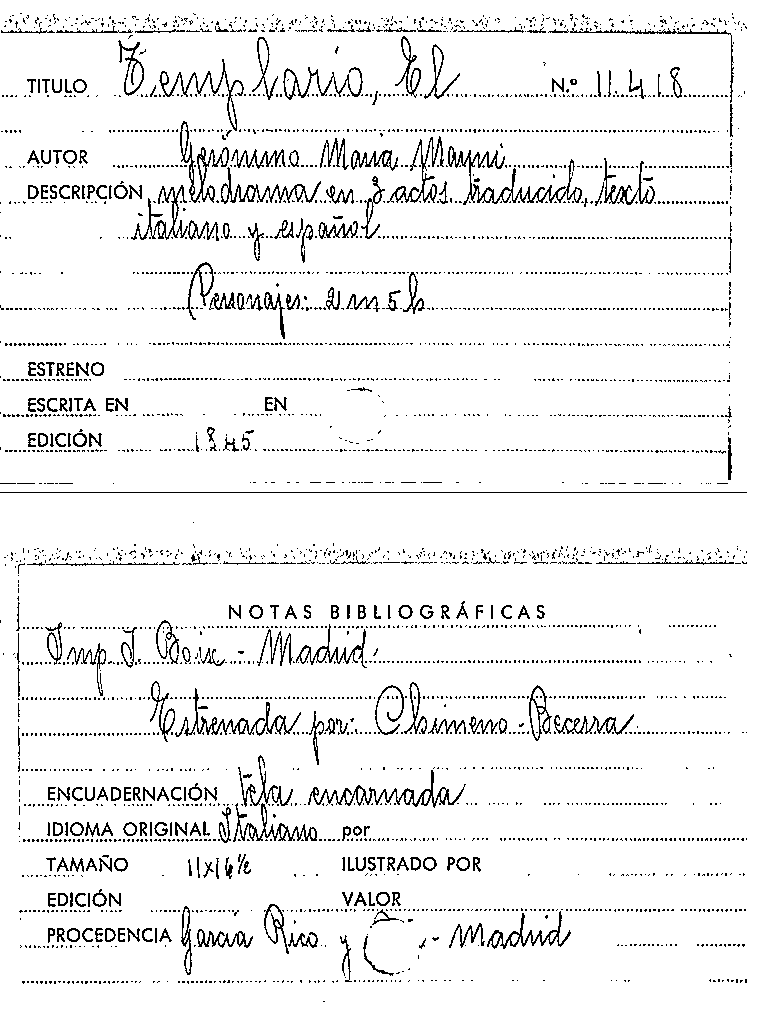 TITULO Templario, El N.º 11.418
AUTOR Gerónimo Maria Mayni
DESCRIPCIÓN melodrama en 3 actos traducido, texto
italiano y español
Personajes: 2 m 5 h
ESTRENO
ESCRITA EN EN
EDICIÓN 1845
NOTAS BIBLIOGRÁFICAS
Imp I. Boix - Madrid.
Estrenada por: Chimeno - Becerra
ENCUADERNACIÓN tela encarnada
IDIOMA ORIGINAL Italiano por
TAMAÑO 11x16½ ILUSTRADO POR
EDICIÓN VALOR
PROCEDENCIA García Rico y - Madrid